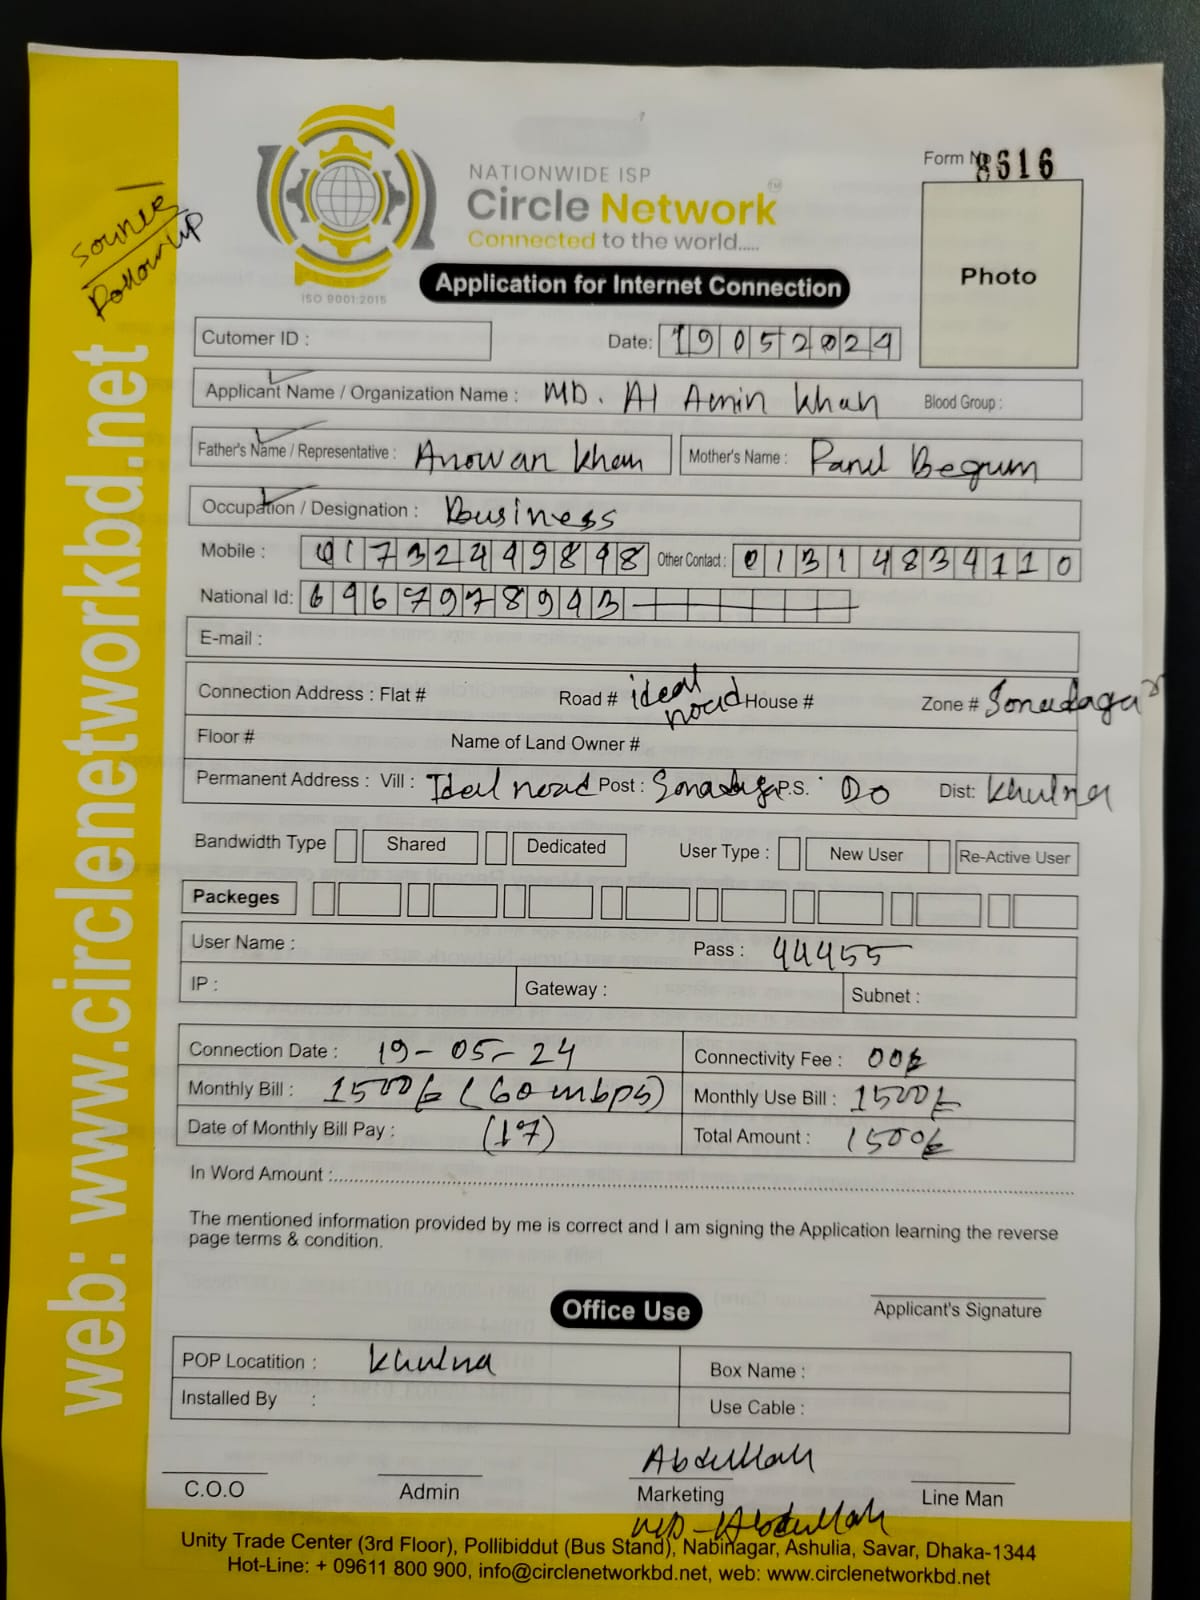 Source
Followup
web: www.circlenetworkbd.net
NATIONWIDE ISP
Circle Network TM
Connected to the world.....
ISO 9001:2015
Form No 8616
Photo
Application for Internet Connection
Cutomer ID :
Date: 19052024
Applicant Name / Organization Name : MD. Al Amin Khan Blood Group :
Father's Name / Representative : Anowar Khan Mother's Name : Parul Begum
Occupation / Designation : Business
Mobile : 01732449898 Other Contact : 01314834110
National Id: 6967978943
E-mail :
Connection Address : Flat # Road # ideal road House # Zone # Sonadagar
Floor # Name of Land Owner #
Permanent Address : Vill : Ideal road Post : Sonadaga P.S. Do Dist: Khulna
Bandwidth Type Shared Dedicated User Type : New User Re-Active User
Packeges
User Name : Pass : 44455
IP : Gateway : Subnet :
Connection Date : 19-05-24 Connectivity Fee : 00/=
Monthly Bill : 1500/= (60 mbps) Monthly Use Bill : 1500/=
Date of Monthly Bill Pay : (17) Total Amount : 1500/=
In Word Amount :
The mentioned information provided by me is correct and I am signing the Application learning the reverse
page terms & condition.
Office Use
Applicant's Signature
POP Locatition : Khulna Box Name :
Installed By : Use Cable :
Abdullah
C.O.O Admin Marketing Line Man
MD-Abdullah
Unity Trade Center (3rd Floor), Pollibiddut (Bus Stand), Nabinagar, Ashulia, Savar, Dhaka-1344
Hot-Line: + 09611 800 900, info@circlenetworkbd.net, web: www.circlenetworkbd.net